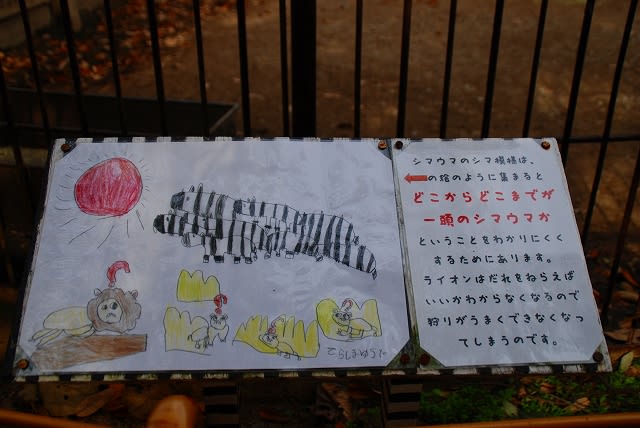 シマウマのシマ模様は、
の絵のように集まると
どこからどこまでが
一頭のシマウマか
ということをわかりにくく
するためにあります。
ライオンはだれをねらえば
いいかわからなくなるので
狩りがうまくできなくなっ
てしまうのです。
てらしまゆうた